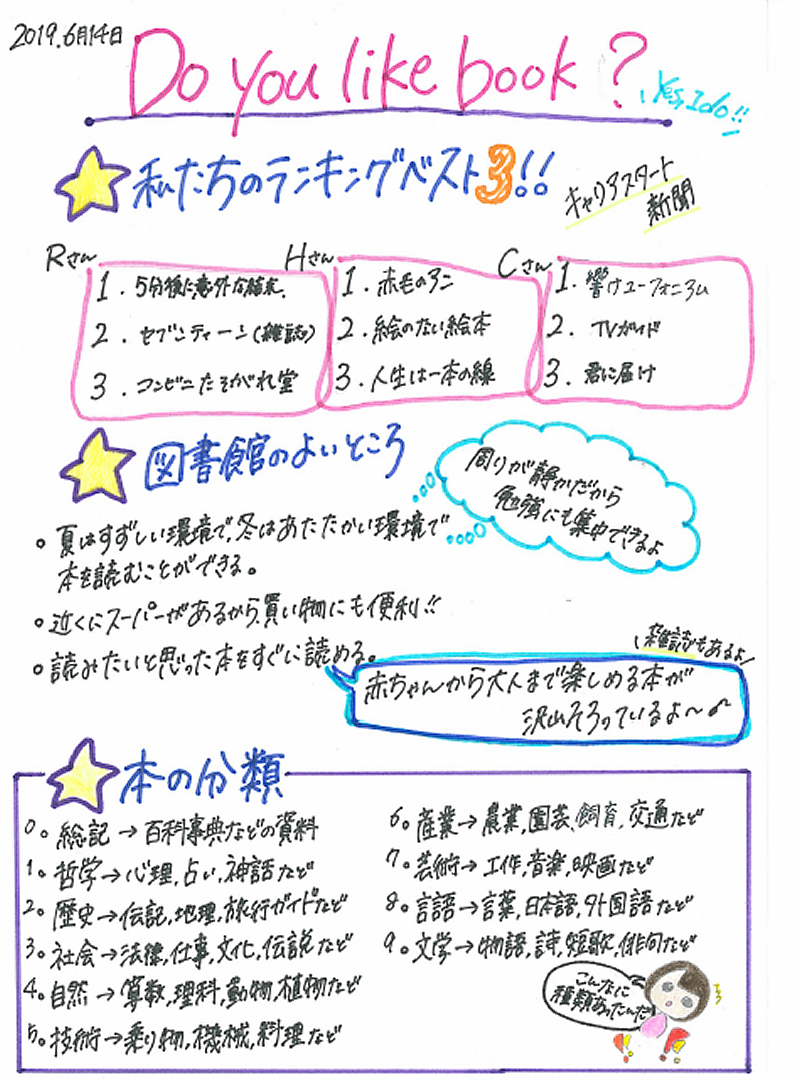 2019.6月14日
Do you like book?
Yes, I do!!
私たちのランキングベスト3!!
キャリアスタート
新聞
Rさん
1. 5分後に意外な結末.
2. セブンティーン(雑誌)
3. コンビニたそがれ堂
Hさん
1. 赤毛のアン
2. 絵のない絵本
3. 人生は一本の線
Cさん
1. 響けユーフォニアム
2. TVガイド
3. 君に届け
図書館のよいところ
周りが静かだから
勉強にも集中できるよ
。夏はすずしい環境で、冬はあたたかい環境で
本を読むことができる。
。近くにスーパーがあるから、買い物にも便利!!
。読みたいと思った本をすぐに読める。
雑誌もあるよ
赤ちゃんから大人まで楽しめる本が
沢山そろっているよ〜
本の分類
0. 総記→百科事典などの資料
1. 哲学→心理,占い,神話など
2. 歴史→伝記,地理,旅行ガイドなど
3. 社会→法律,仕事,文化,伝説など
4. 自然→算数,理科,動物,植物など
5. 技術→乗り物,機械,料理など
6. 産業→農業,園芸,飼育,交通など
7. 芸術→工作,音楽,映画など
8. 言語→言葉,日本語,外国語など
9. 文学→物語,詩,短歌,俳句など
こんなに
種類あったんだ!